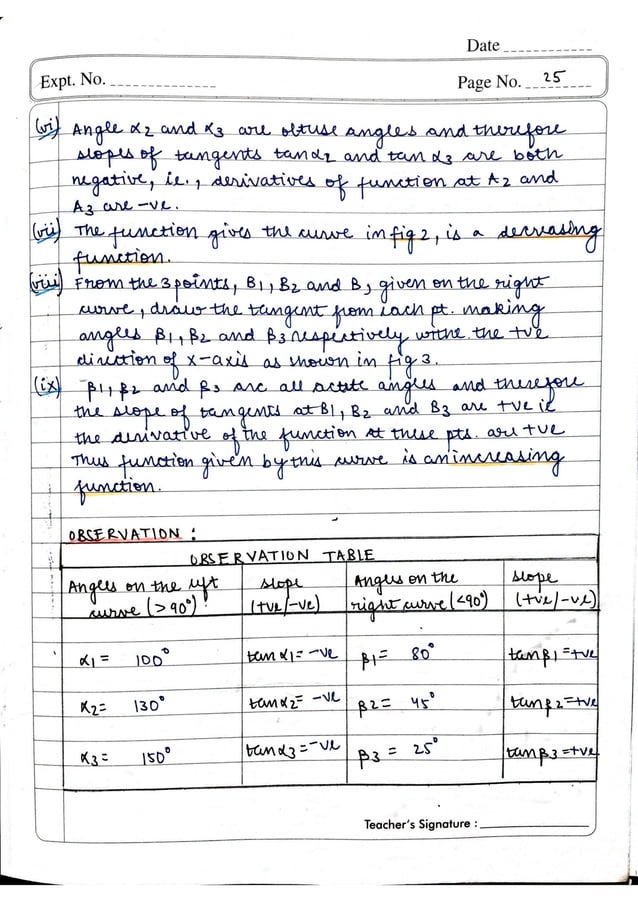 Date
Expt. No.
Page No. 25
(vi) Angle α2 and α3 are obtuse angles and therefore
slopes of tangents tanα2 and tan α3 are both
negative, ie., derivatives of function at A2 and
A3 are -ve.
(vii) The function gives the curve in fig 2, is a decreasing
function.
(viii) From the 3 points, B1, B2 and B3 given on the right
curve, draw the tangent from each pt. making
angles β1, β2 and β3 respectively withe the +ve
direction of x-axis as shown in fig 3.
(ix) β1, β2 and β3 are all actute angles and therefore
the slope of tangents at B1, B2 and B3 are +ve ie
the derivative of the function at these pts. are +ve
Thus function given by this curve is an increasing
function.
OBSERVATION :
OBSERVATION TABLE
Angles on the left curve (>90°) slope (+ve/-ve) Angles on the right curve (<90°) slope (+ve/-ve)
α1 = 100° tan α1 = -ve β1 = 80° tan β1 = +ve
α2 = 130° tan α2 = -ve β2 = 45° tan β2 = +ve
α3 = 150° tan α3 = -ve β3 = 25° tan β3 = +ve
Teacher's Signature :